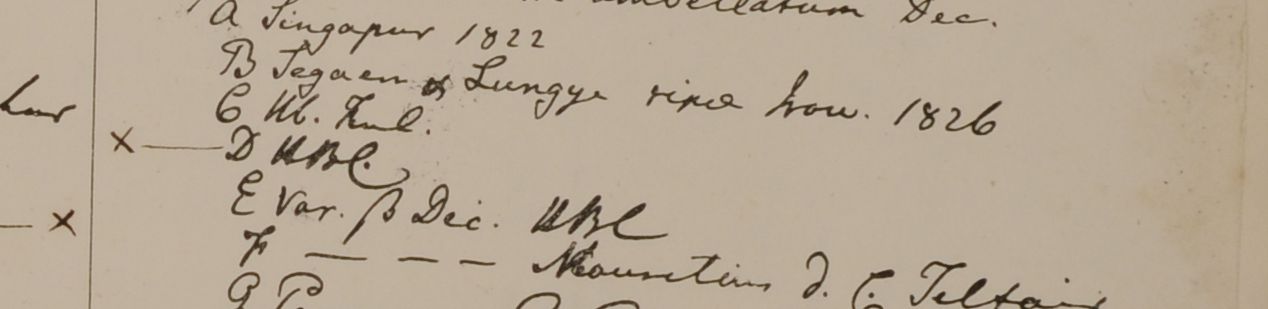 umbellatum Dec.
A Singapur 1822
B Segaen & Lungye ripa Nov. 1826
C Hb. Ful.
D HBC.
E Var. β Dec. HBC
F — — — — Mauritius d. C. Telfair
G